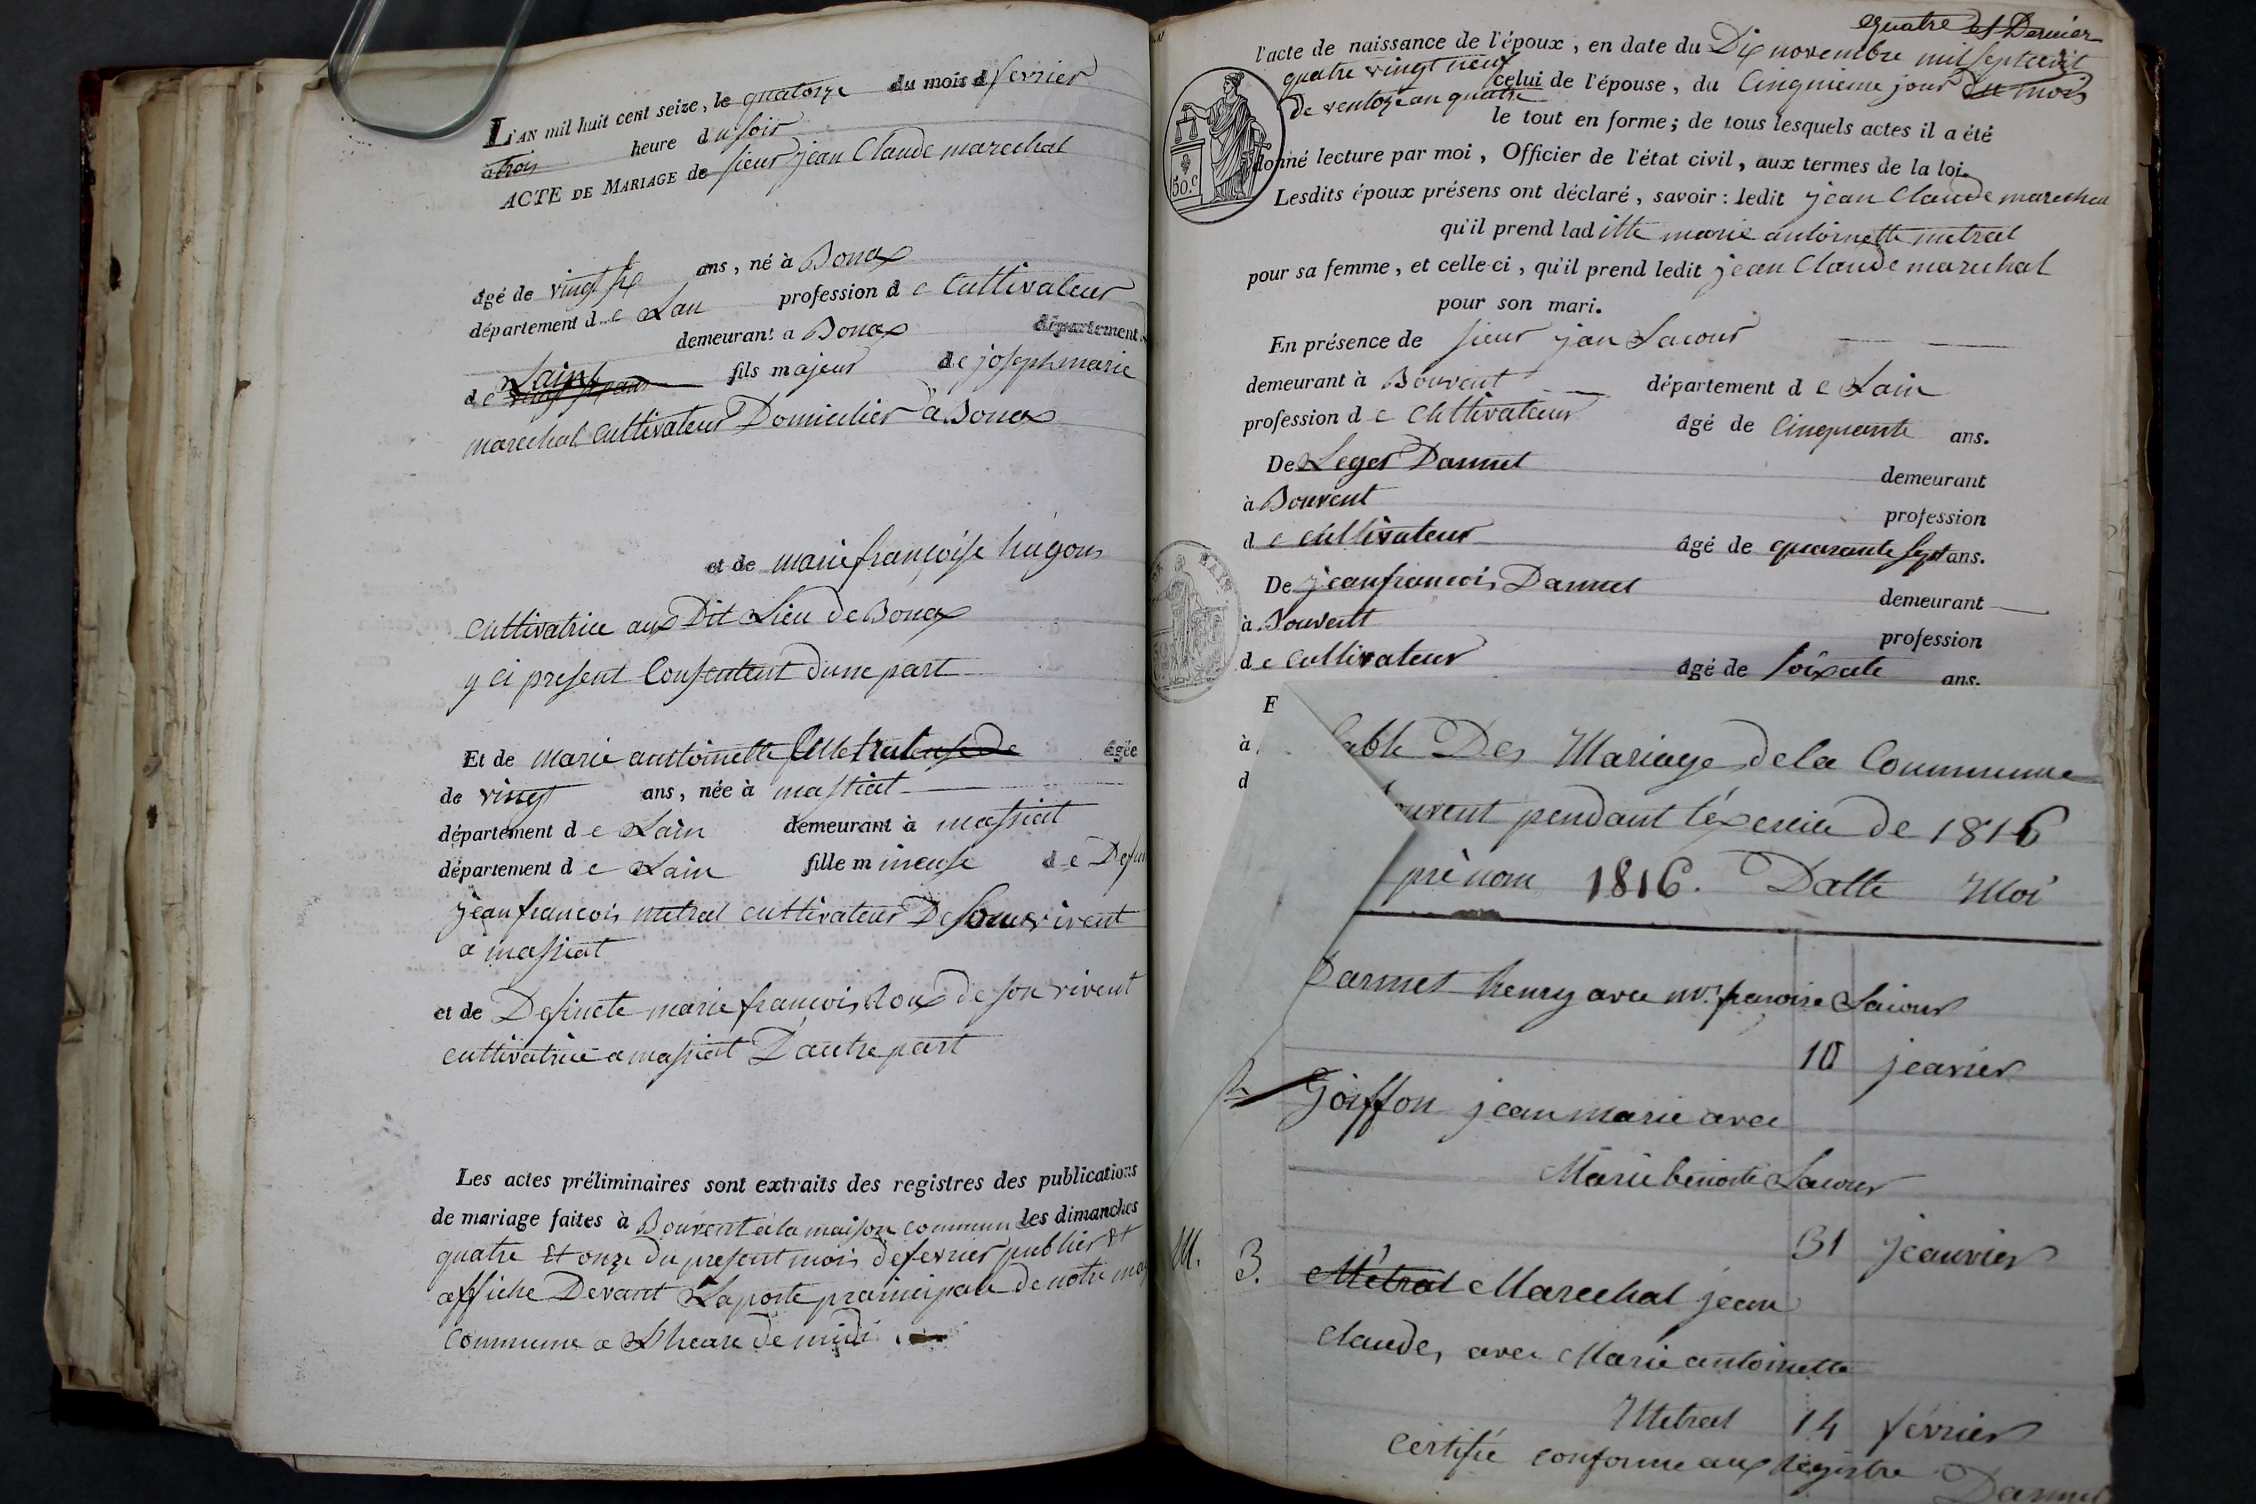 L'AN mil huit cent seize, le quatorze du mois d fevrier
a trois heure du soir
ACTE DE MARIAGE de sieur jean Claude marechal
âgé de vingt six ans, né à Bouax
département de Lau profession de Cultivateur
demeurant a Bouax département
de Laint fils majeur de joseph marie
marechal cultivateur Domicilier a Bouax
et de marie françoise hugon
cultivatrice aux Dit Lieu de Bouax
y ci present Consentent dune part
Et de marie anttoinette Metral âgée
de vingt ans, née à massiat
département de Lain demeurant à massiat
département de Lain fille mineuse de Defun
jean francois metral cultivateur De son vivent
a massiat
et de Defincte marie francois Roux de son vivent
cultivatrice a massiat D'autre part
Les actes préliminaires sont extraits des registres des publications
de mariage faites à Bouvent a la maison commun les dimanches
quatre Et onze Du present mois de fevrier publier Et
affiche Devant La porte prainicipale de notre
commune a L'heure de midi
quatre et Dernier
l'acte de naissance de l'époux, en date du Dix novembre mil sept cent
quatre vingt neuf celui de l'épouse, du Cinquieme jour du mois
De ventoze an quatre
le tout en forme; de tous lesquels actes il a été
donné lecture par moi, Officier de l'état civil, aux termes de la loi.
50.c
Lesdits époux présens ont déclaré, savoir: ledit jean Claude marechal
qu'il prend laditte marie antoinette metral
pour sa femme, et celle-ci, qu'il prend ledit jean Claude marechal
pour son mari.
En présence de sieur jean Lacour
demeurant à Bouvent département de Lain
profession de Cultivateur âgé de Cinquante ans.
De Leger Darmet demeurant
à Bouvent profession
de cultivateur âgé de quarante sept ans.
De jean francois Darmet demeurant
à Bouvent profession
de cultivateur âgé de soixate ans.
E
à
d
table Des Mariage de la Commune
ouvent pendant l'éxercice de 1816
prènom 1816. Datte Moi
Darmet henry avec m.ie francoise Lacour
10 jeanvier
Goiffon jean marie avec
Marie benoite Lacour
31 jeanvier
M. 3. Métral Marechal jean
Claude, avec Marie antoinette
Metral 14 fevrier
Certifié conforme aux Registre Darmet